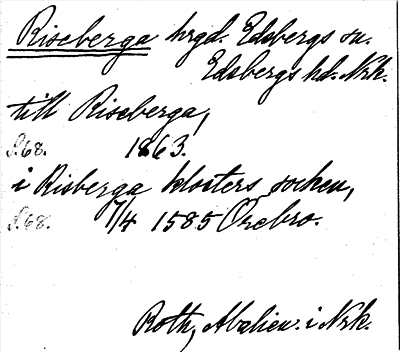 Riseberga hrgd. Edsbergs sn.
Edsbergs hd. Nrk.
till Riseberga,
S. 68. 1863.
i Risberga klosters socken,
S. 68. 7/4 1585 Örebro.
Roth, Abalien. i Nrk.